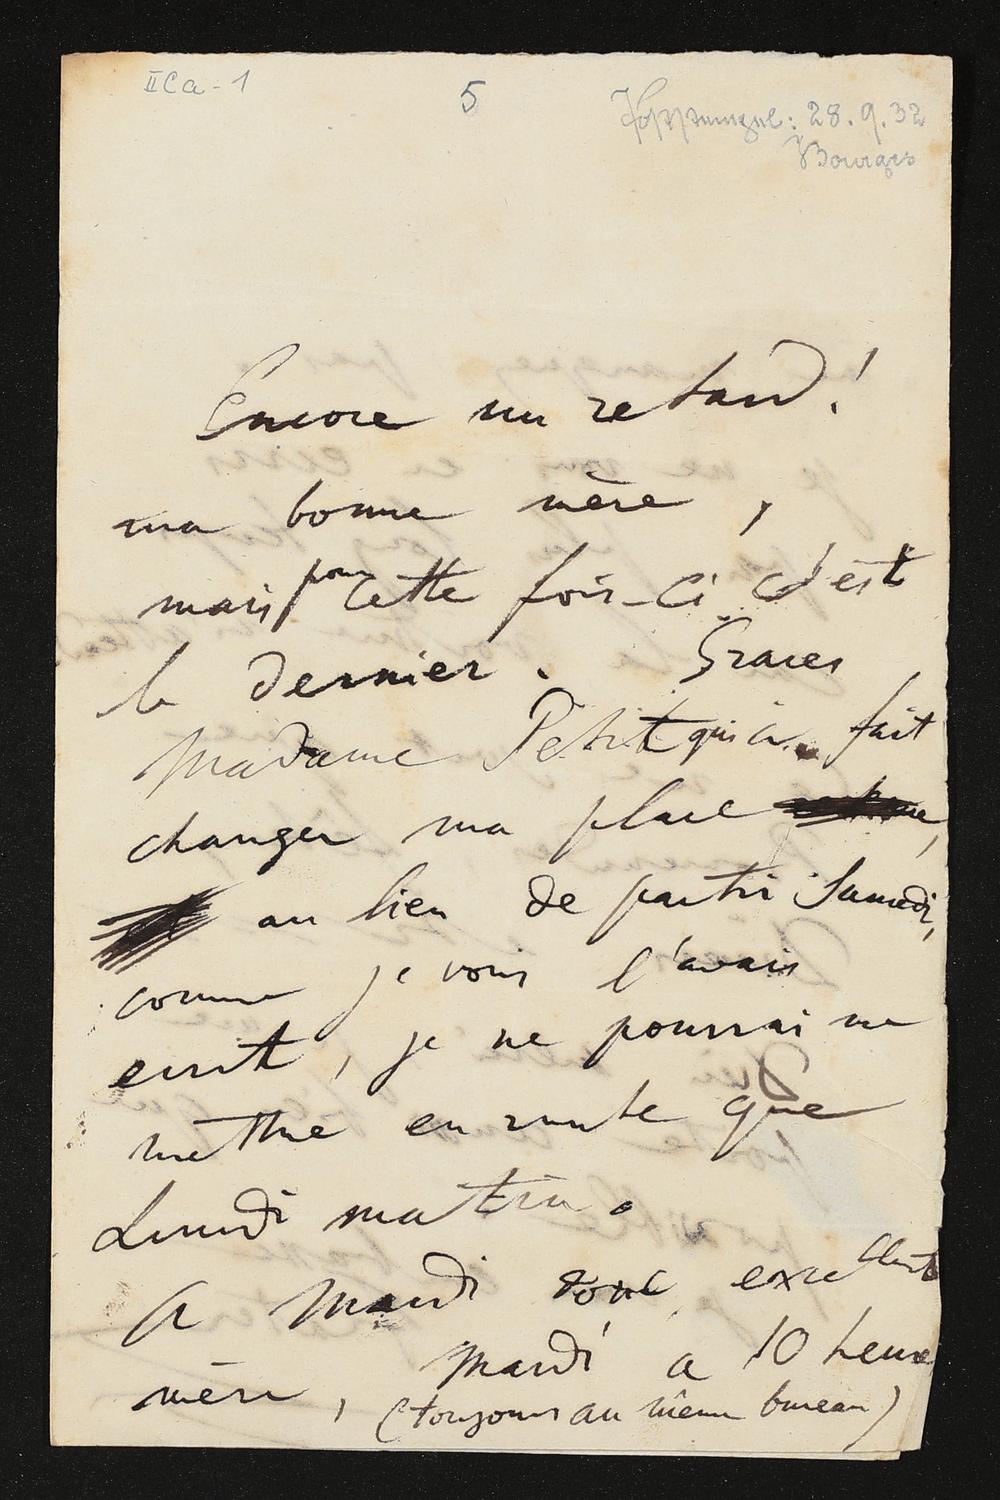 II Ca - 1
5
Poststempel: 28.9.32
Bourges
Encore un retard!
ma bonne mère,
mais pour cette fois-ci c'est
le dernier. Graces
Madame Petit qui a fait
changer ma place
au lieu de partir Samedi,
comme je vous l'avais
ecrit, je ne pourrai me
mettre en route que
Lundi matin.
A Mardi donc, excellente
mère, Mardi a 10 heure
(toujours au même bureau)